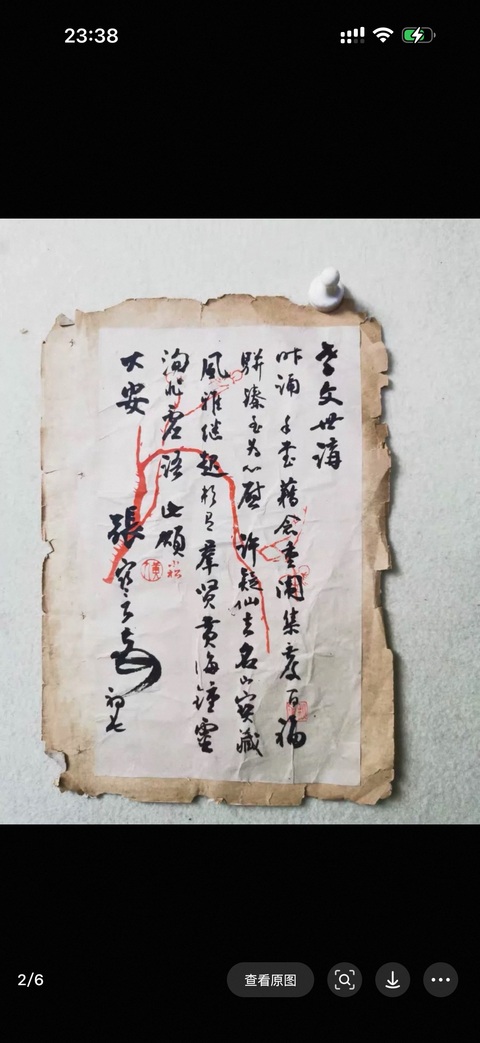 23:38
文世講
昨誦 手書藉念重闈集慶百福
駢臻至為心慰 許疑仙名山寶藏
風雅繼起 群賢黃海鐘靈
洵非虛語 此頌
大安
張
初七
小松
2/6
查看原图